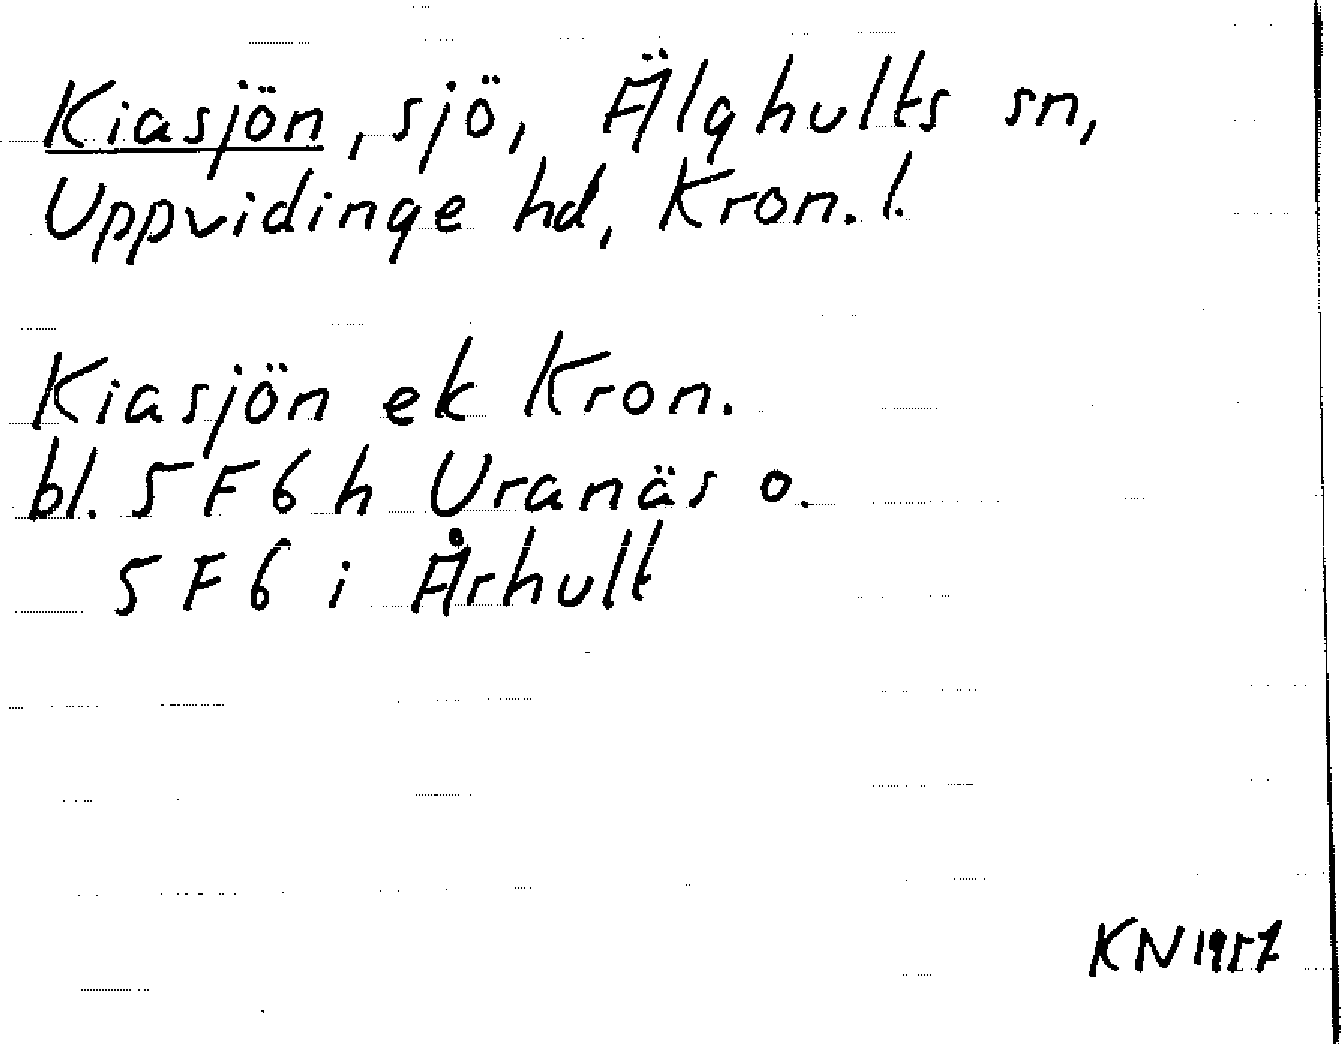 Kiasjön, sjö, Älghults sn,
Uppvidinge hd, Kron. l.
Kiasjön ek Kron.
bl. 5 F 6 h Uranäs o.
5 F 6 i Århult
KN 1957